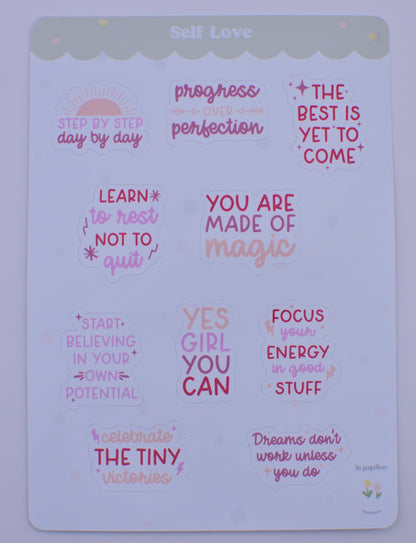 Self Love
STEP BY STEP
day by day
progress
OVER
perfection
THE
BEST IS
YET TO
COME
LEARN
to rest
NOT TO
quit
YOU ARE
MADE OF
magic
START
BELIEVING
IN YOUR
OWN
POTENTIAL
YES
GIRL
YOU
CAN
FOCUS
your
ENERGY
in good
STUFF
celebrate
THE TINY
victories
Dreams don't
work unless
you do
le papillon